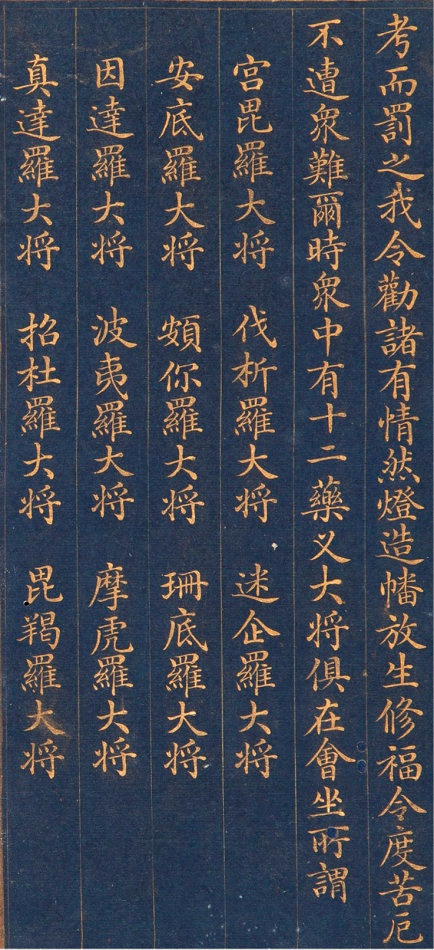 考而罰之我令勸諸有情然燈造幡放生修福令度苦厄
不遭衆難爾時衆中有十二藥叉大将俱在會坐所謂
宫毘羅大将 伐折羅大将 迷企羅大将
安底羅大将 頞你羅大将 珊底羅大将
因達羅大将 波夷羅大将 摩虎羅大将
真達羅大将 招杜羅大将 毘羯羅大将